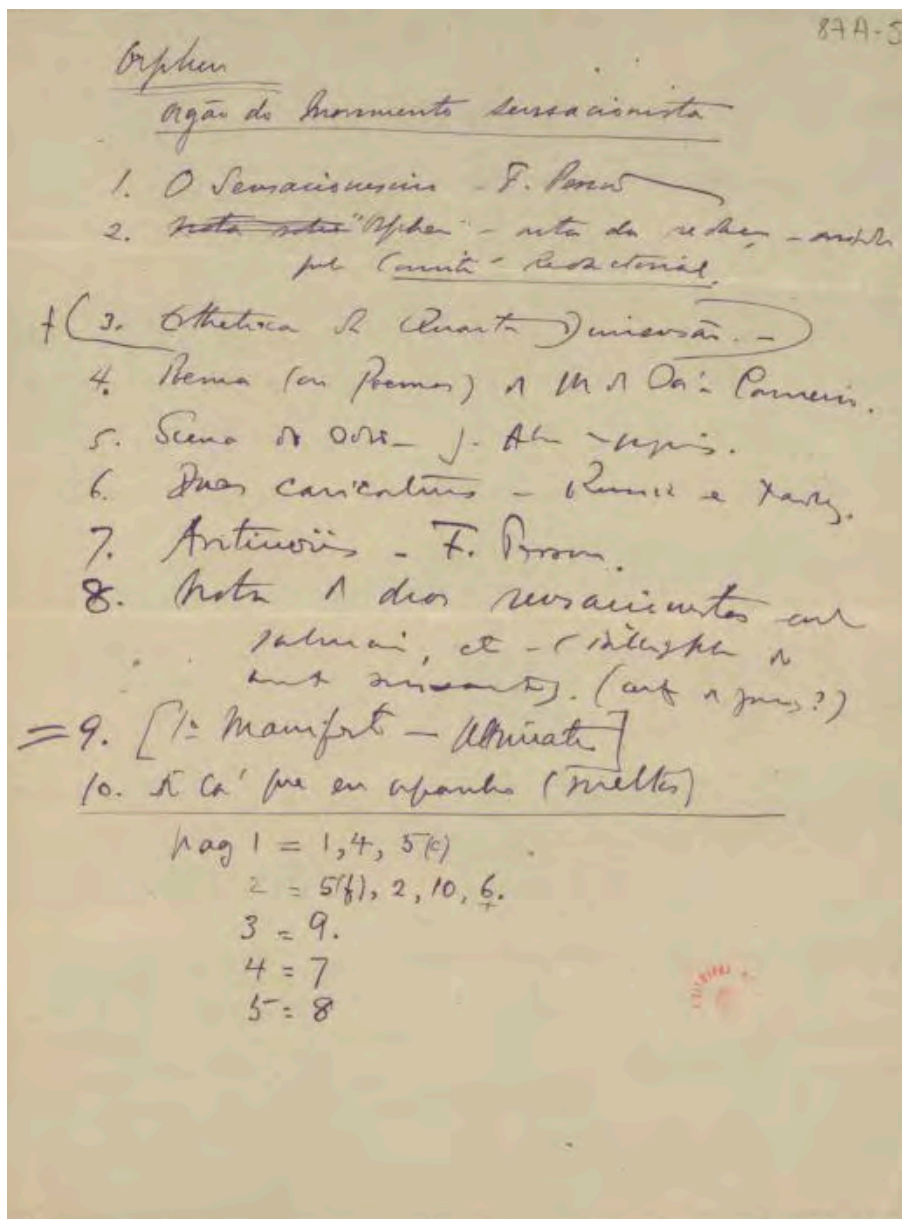 87A-5
Orpheu
orgão do movimento sensacionista
1. O Sensacionismo - F. Pessoa
2. Nota sobre "Orpheu" - nota da redacção -
pelo Comité Redactorial.
+ (3. Esthetica da Quarta Dimensão. -)
4. Poema (ou Poemas) de M de Sá-Carneiro.
5. Scena do Odio - J. Almada-Negreiros.
6. Duas caricaturas - e
7. Antinoüs - F. Pessoa.
8. Nota de dois sensacionistas
, etc - (
). (art de jornaes?)
= 9. [1º Manifesto - Ultimatum]
10. De cá que eu apanho (sueltos)
pag 1 = 1, 4, 5(c)
2 = 5(f), 2, 10, 6.
+
3 = 9.
4 = 7
5 = 8